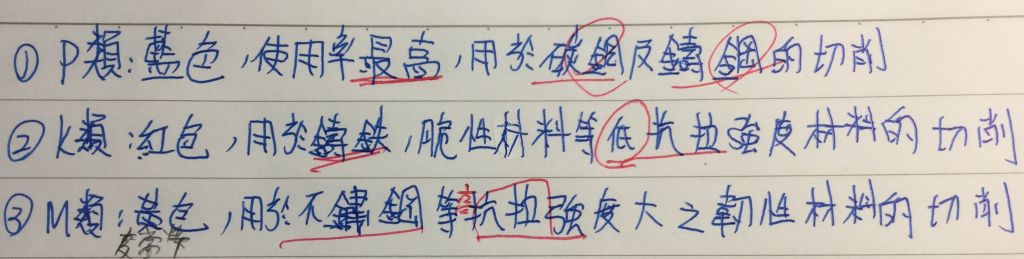 ① P類:藍色,使用率最高,用於碳鋼及鑄鋼的切削
② K類:紅色,用於鑄鉄,脆性材料等低抗拉強度材料的切削
③ M類:黃色,用於不鏽鋼等高抗拉強度大之韌性材料的切削